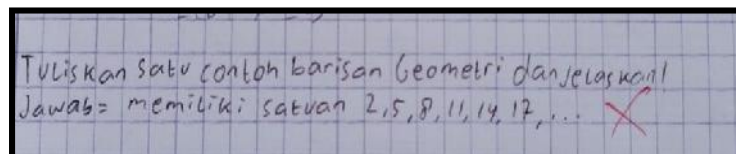 Tuliskan satu contoh barisan Geometri dan jelaskan!
Jawab= memiliki satuan 2,5,8,11,14,17,...